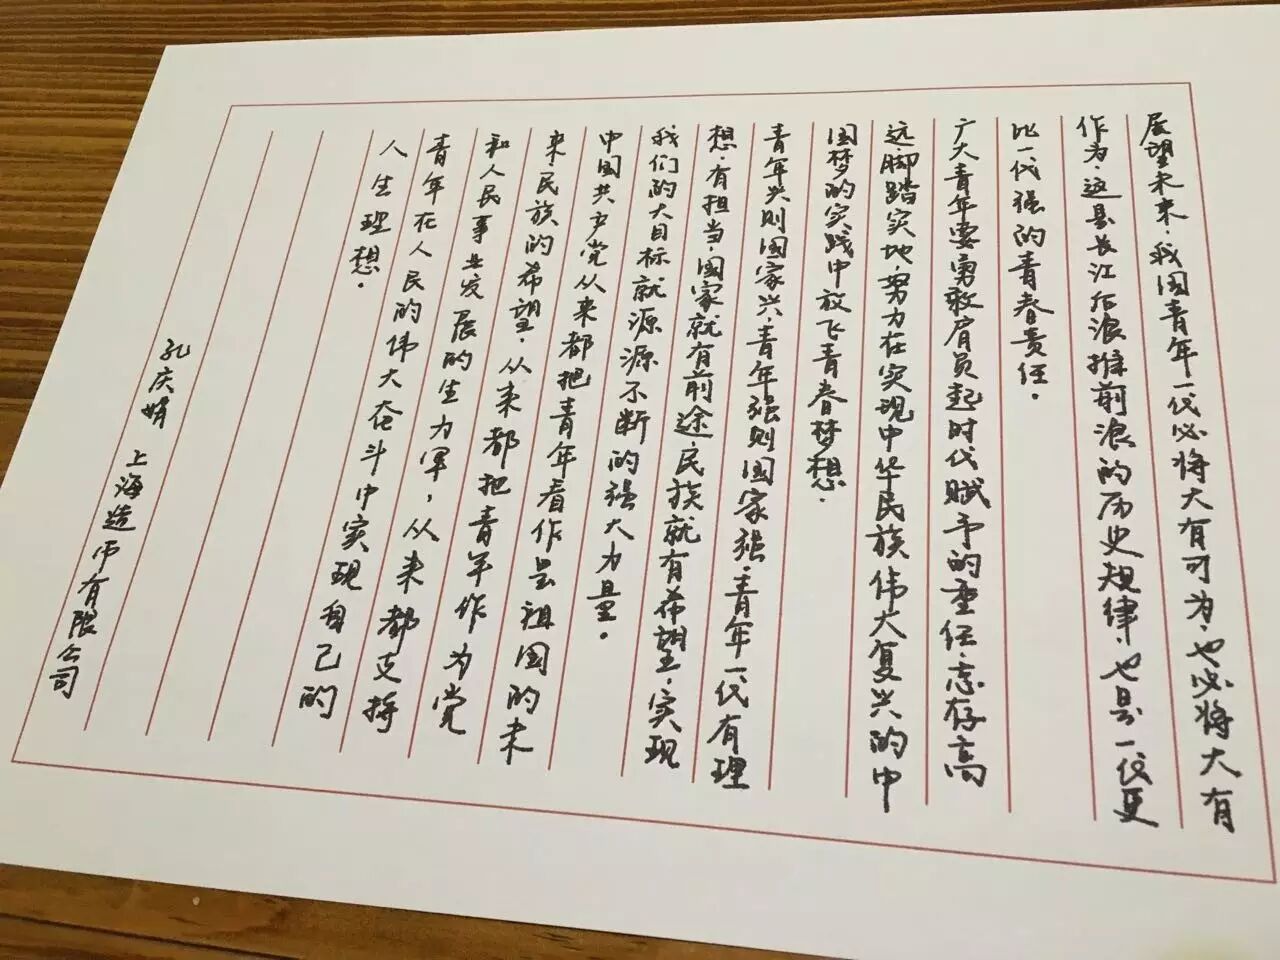 展望未来，我国青年一代必将大有可为，也必将大有
作为。这是长江后浪推前浪的历史规律，也是一代更
比一代强的青春责任。
广大青年要勇敢肩负起时代赋予的重任，志存高
远，脚踏实地，努力在实现中华民族伟大复兴的中
国梦的实践中放飞青春梦想。
青年兴则国家兴，青年强则国家强。青年一代有理
想，有担当，国家就有前途，民族就有希望，实现
我们的大目标就源源不断的强大力量。
中国共产党从来都把青年看作是祖国的未
来、民族的希望，从来都把青年作为党
和人民事业发展的生力军，从来都支持
青年在人民的伟大奋斗中实现自己的
人生理想。
孔庆娟 上海造币有限公司